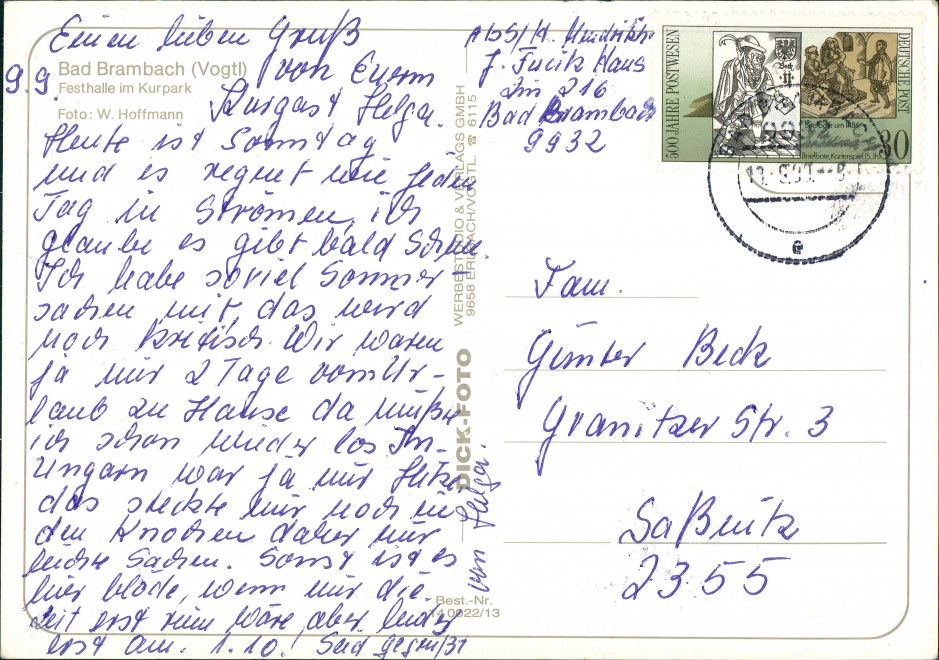 Einen lieben Gruß
9.9.
von Euerm
Kurgast Helga.
Bad Brambach (Vogtl)
Festhalle im Kurpark
Foto: W. Hoffmann
Heute ist Sonntag
und es regnet wie jeden
Tag in Strömen, ich
glaube es gibt bald Schnee.
Ich habe soviel Sommer-
sachen mit, das wird
noch kritisch. Wir waren
ja nur 2 Tage vom Ur-
laub zu Hause da mußte
ich schon wieder los. In
Ungarn war ja nur Hitze
das steckte mir noch in
den Knochen daher nur
leichte Sachen. Sonst ist es
hier blöde, wenn nur die
Zeit erst rum wäre, aber leider
erst am. 1.10. Seid gegrüßt
von Helga.
WERBESTUDIO & VERLAGS GMBH
9658 ERLBACH/VOGTL. ☎ 6115
DICK-FOTO
Best.-Nr.
14 0022/13
Abs/H.
J. Fucik Haus
Zim 216
Bad Brambach
9932
500 JAHRE POSTWESEN
DEUTSCHE POST
Botenkarte um 1486
Briefbote, Kartenspiel 15. Jh.
30
Fam.
Günter Beck
Granitzer Str. 3
Saßnitz
2355